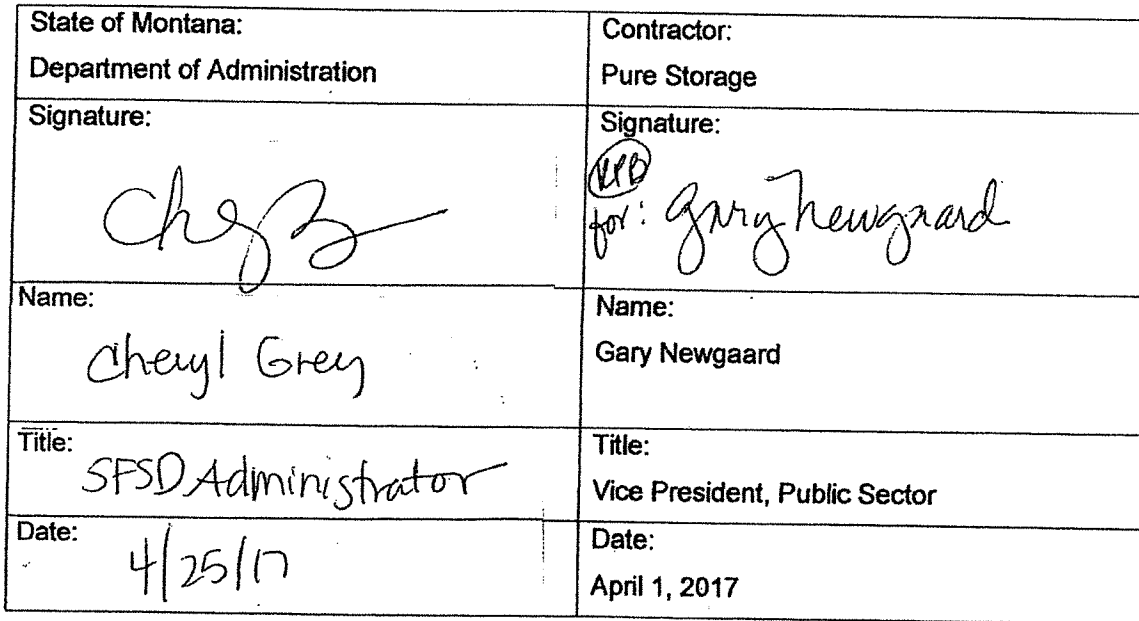 State of Montana:
Department of Administration
Contractor:
Pure Storage
Signature:
Signature:
for: Gary Newgaard
Name:
Cheryl Grey
Name:
Gary Newgaard
Title:
SFSD Administrator
Title:
Vice President, Public Sector
Date:
4/25/17
Date:
April 1, 2017